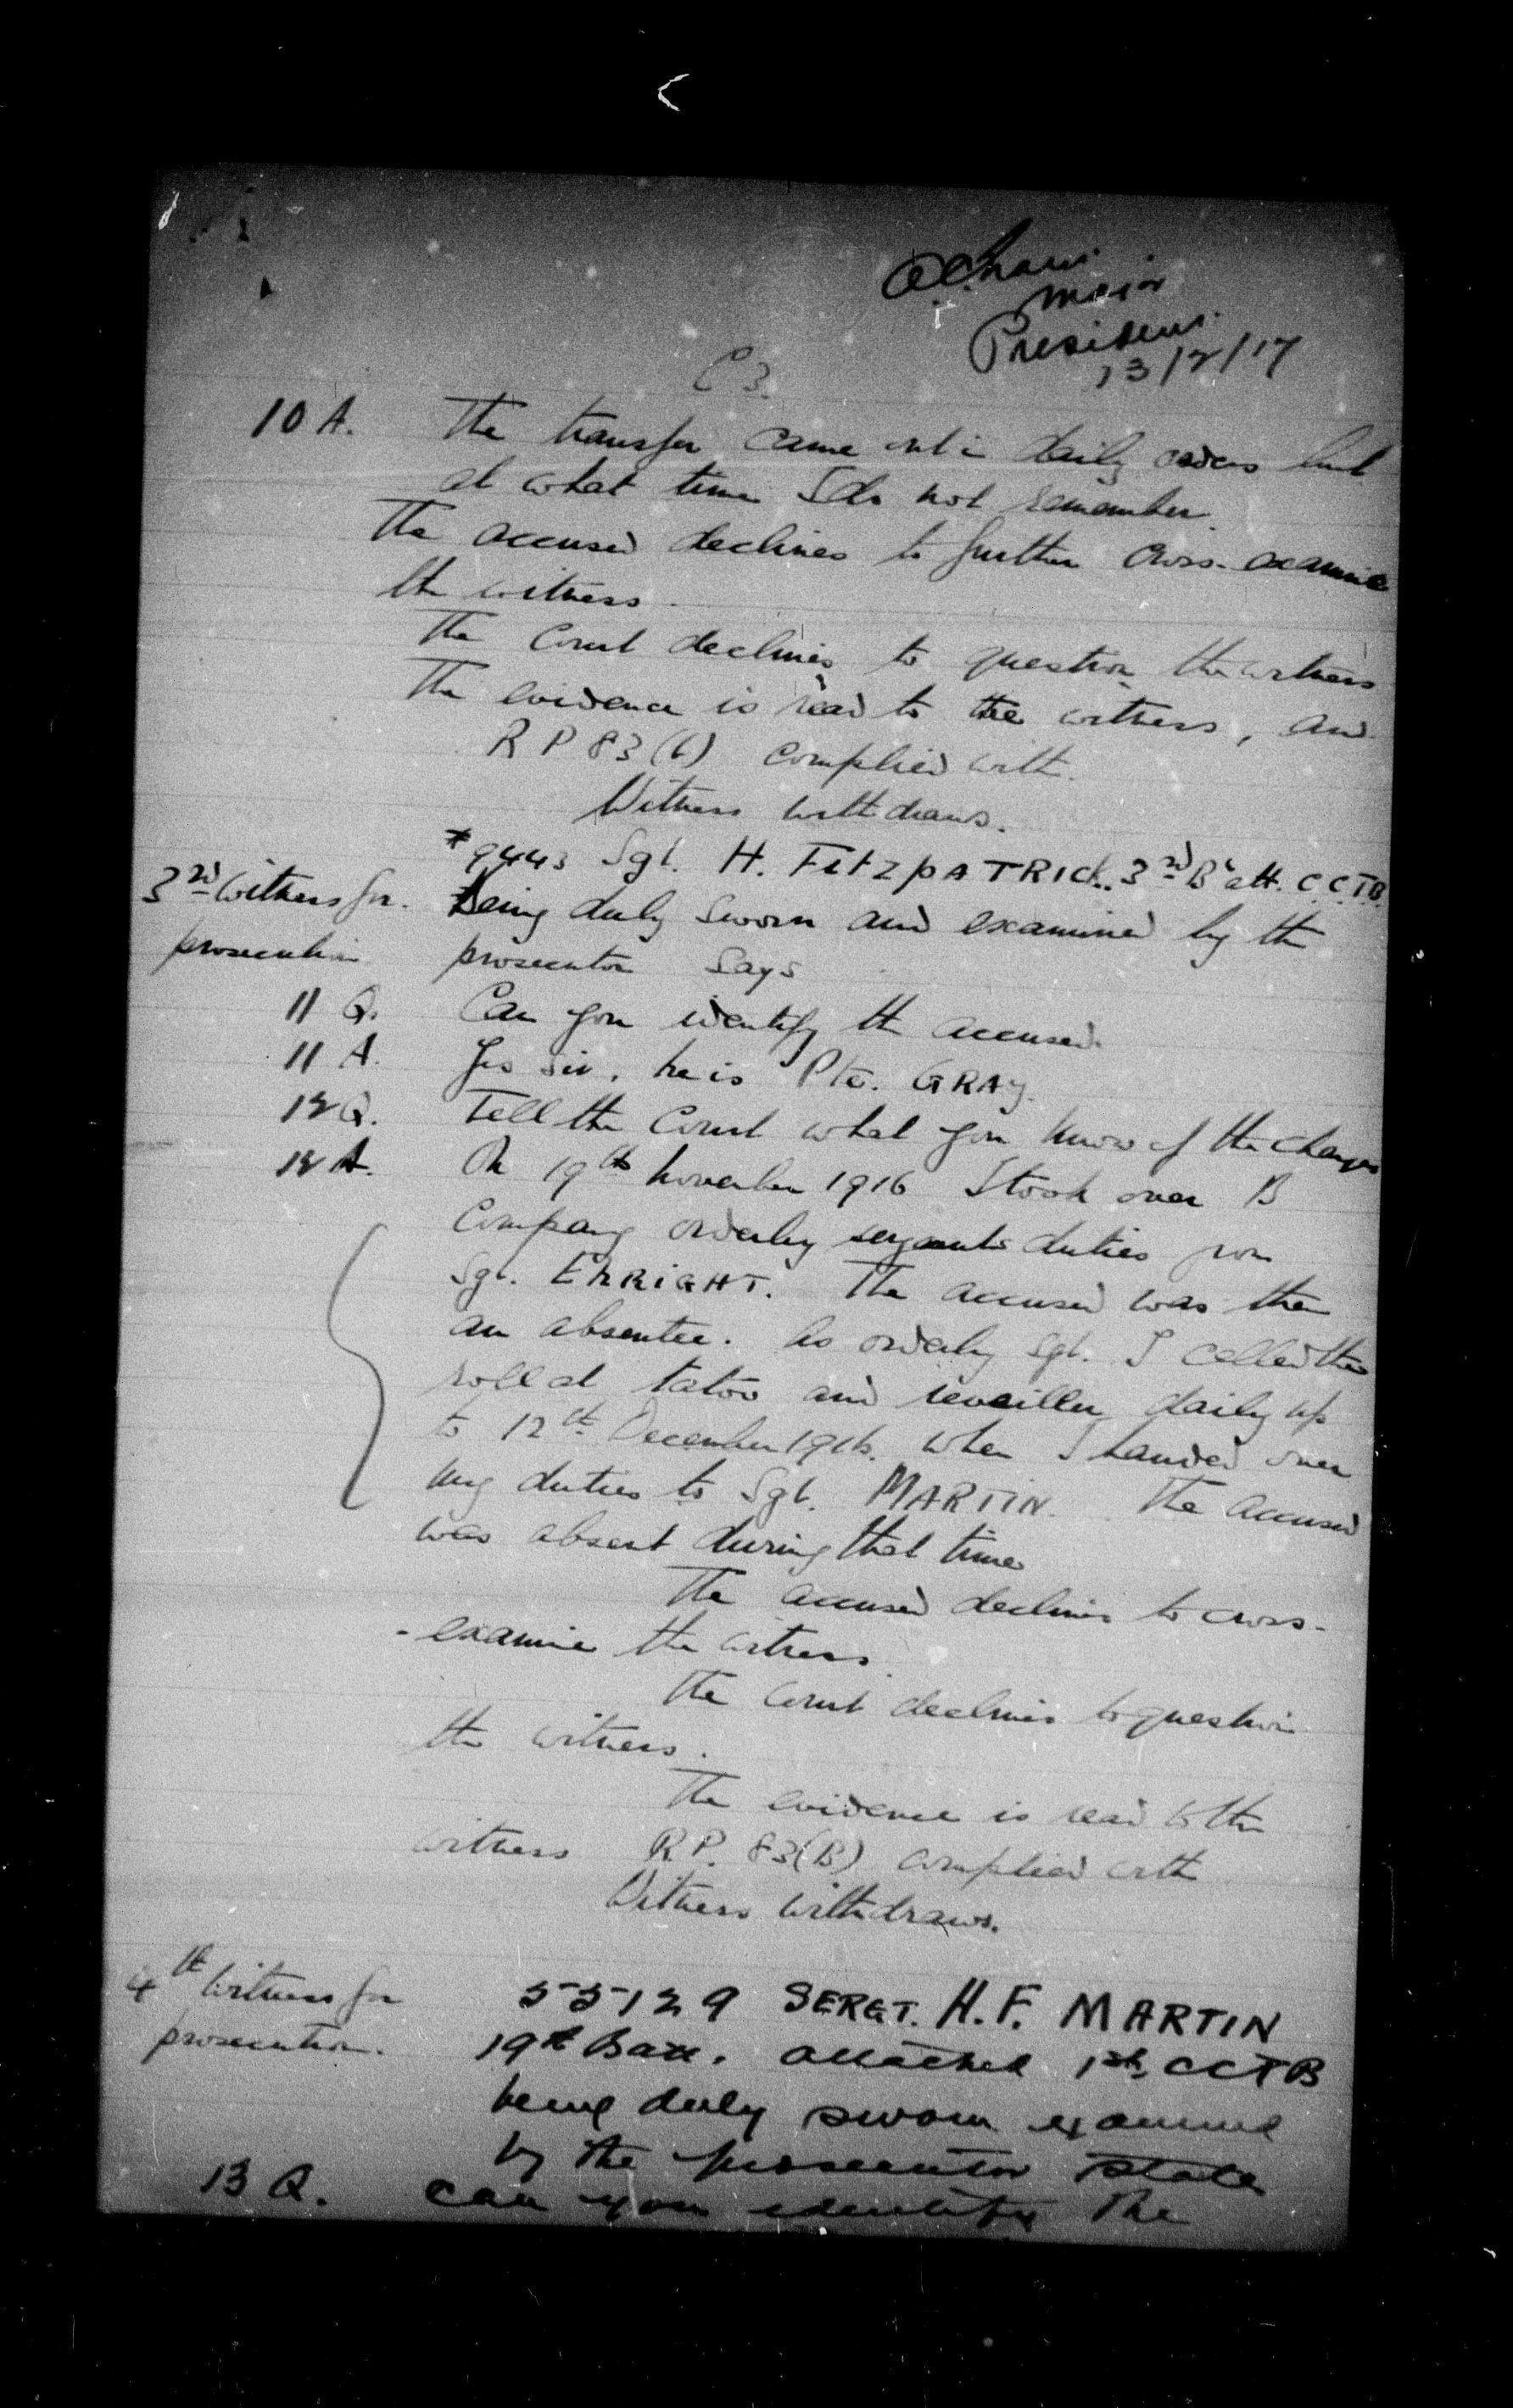 Major
President
13/2/17
C 3.
10 A. The transfer came out in daily orders but
at what time I do not remember.
The accused declines to further cross-examine
the witness.
The Court declines to question the witness
The evidence is read to the witness, and
R P 83 (b) complied with.
Witness withdraws.
#9443 Sgt. H. FITZPATRICK. 3rd B att. C.C.T.B.
3rd Witness for being duly sworn and examined by the
prosecution prosecutor says
11 Q. Can you identify the accused.
11 A. Yes sir, he is Pte. GRAY.
12 Q. Tell the Court what you know of the charges
12 A. On 19th November 1916 I took over B
Company orderly sergeants duties from
Sgt. ENRIGHT. The accused was then
an absentee. As orderly Sgt. I called the
roll at tatoo and reveillee daily up
to 12th December 1916. when I handed over
my duties to Sgt. MARTIN. The accused
was absent during that time
The accused declines to cross-
-examine the witness.
The Court declines to question
the witness.
The evidence is read to the
witness R P. 83(B) complied with
Witness withdraws.
4th Witness for 55129 SERGT. H.F. MARTIN
prosecution. 19th Batt. attached 1st CCTB
being duly sworn examined
by the prosecutor states
13 Q. Can you identify the